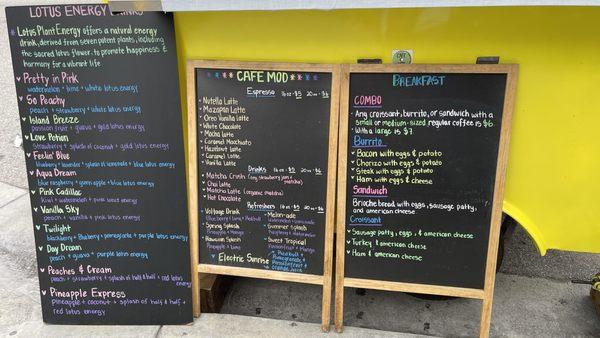 LOTUS ENERGY DRINKS
Lotus Plant Energy offers a natural energy
drink, derived from seven potent plants, including
the sacred lotus flower, to promote happiness &
harmony for a vibrant life
Pretty in Pink
watermelon + lime + white lotus energy
Go Peachy
peach + strawberry + white lotus energy
Island Breeze
passion fruit + guava + gold lotus energy
Love Potion
strawberry + splash of coconut + gold lotus energy
Feelin' Blue
blueberry + lavender + splash of lemonade + blue lotus energy
Aqua Dream
blue raspberry + green apple + blue lotus energy
Pink Cadillac
Kiwi + watermelon + pink lotus energy
Vanilla Sky
peach + vanilla + pink lotus energy
Twilight
blackberry + Blueberry + pomegranate + purple lotus energy
Day Dream
peach + guava + purple lotus energy
Peaches & Cream
peach + strawberry + splash of half & half + red lotus
energy
Pineapple Express
Pineapple + coconut + splash of half & half +
red lotus energy
CAFE MOD
Espresso 16oz $5 20oz $6
Nutella Latte
Mazapan Latte
Oreo Vanilla Latte
White Chocolate
Mocha Latte
Caramel Macchiato
Hazelnut Latte
Caramel Latte
Vanilla Latte
Drinks
Matcha Crush (strawberry jam + matcha)
Chai Latte
Matcha Latte (organic matcha)
Hot Chocolate
Refreshers
Voltage Drink
Spring Splash
Hawaiian Splash
Melon-ade
Summer Splash
Sweet Tropical
Electric Sunrise
BREAKFAST
COMBO
Any croissant, burrito, or sandwich with a
small or medium-sized regular coffee is $6
With a large is $7
Burrito
Bacon with eggs & potato
Chorizo with eggs & potato
Steak with eggs & potato
Ham with eggs & cheese
Sandwich
Brioche bread with eggs, sausage patty,
and american cheese
Croissant
Sausage patty, eggs, & american cheese
Turkey & american cheese
Ham & american cheese